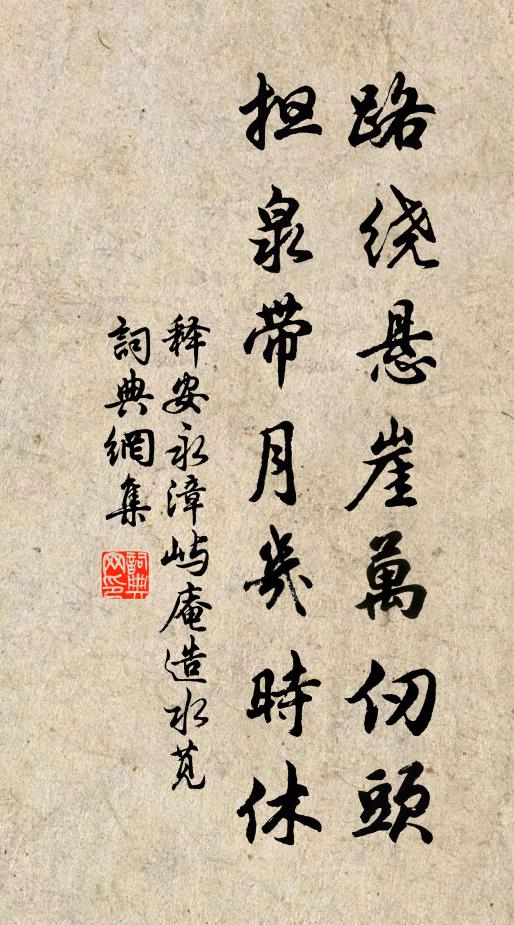 路绕悬崖萬仞頭
担泉带月幾時休
释安永漳屿庵造水笕
詞典網集
詞典网印